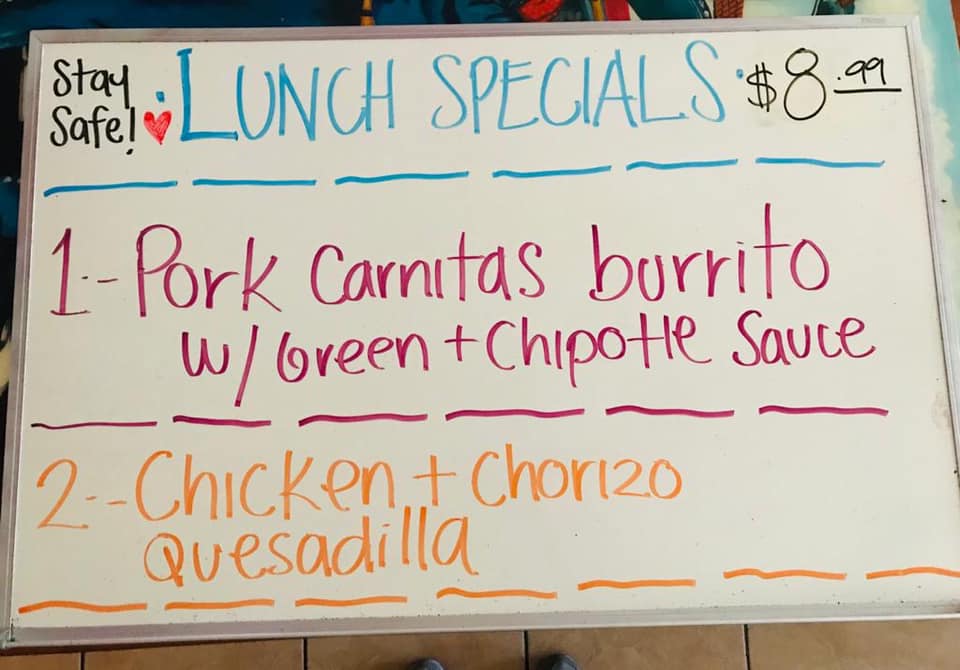 Stay Safe! ♥ • LUNCH SPECIALS • $8.99
1-Pork Carnitas burrito
w/Green + Chipotle Sauce
2--Chicken + Chorizo
Quesadilla